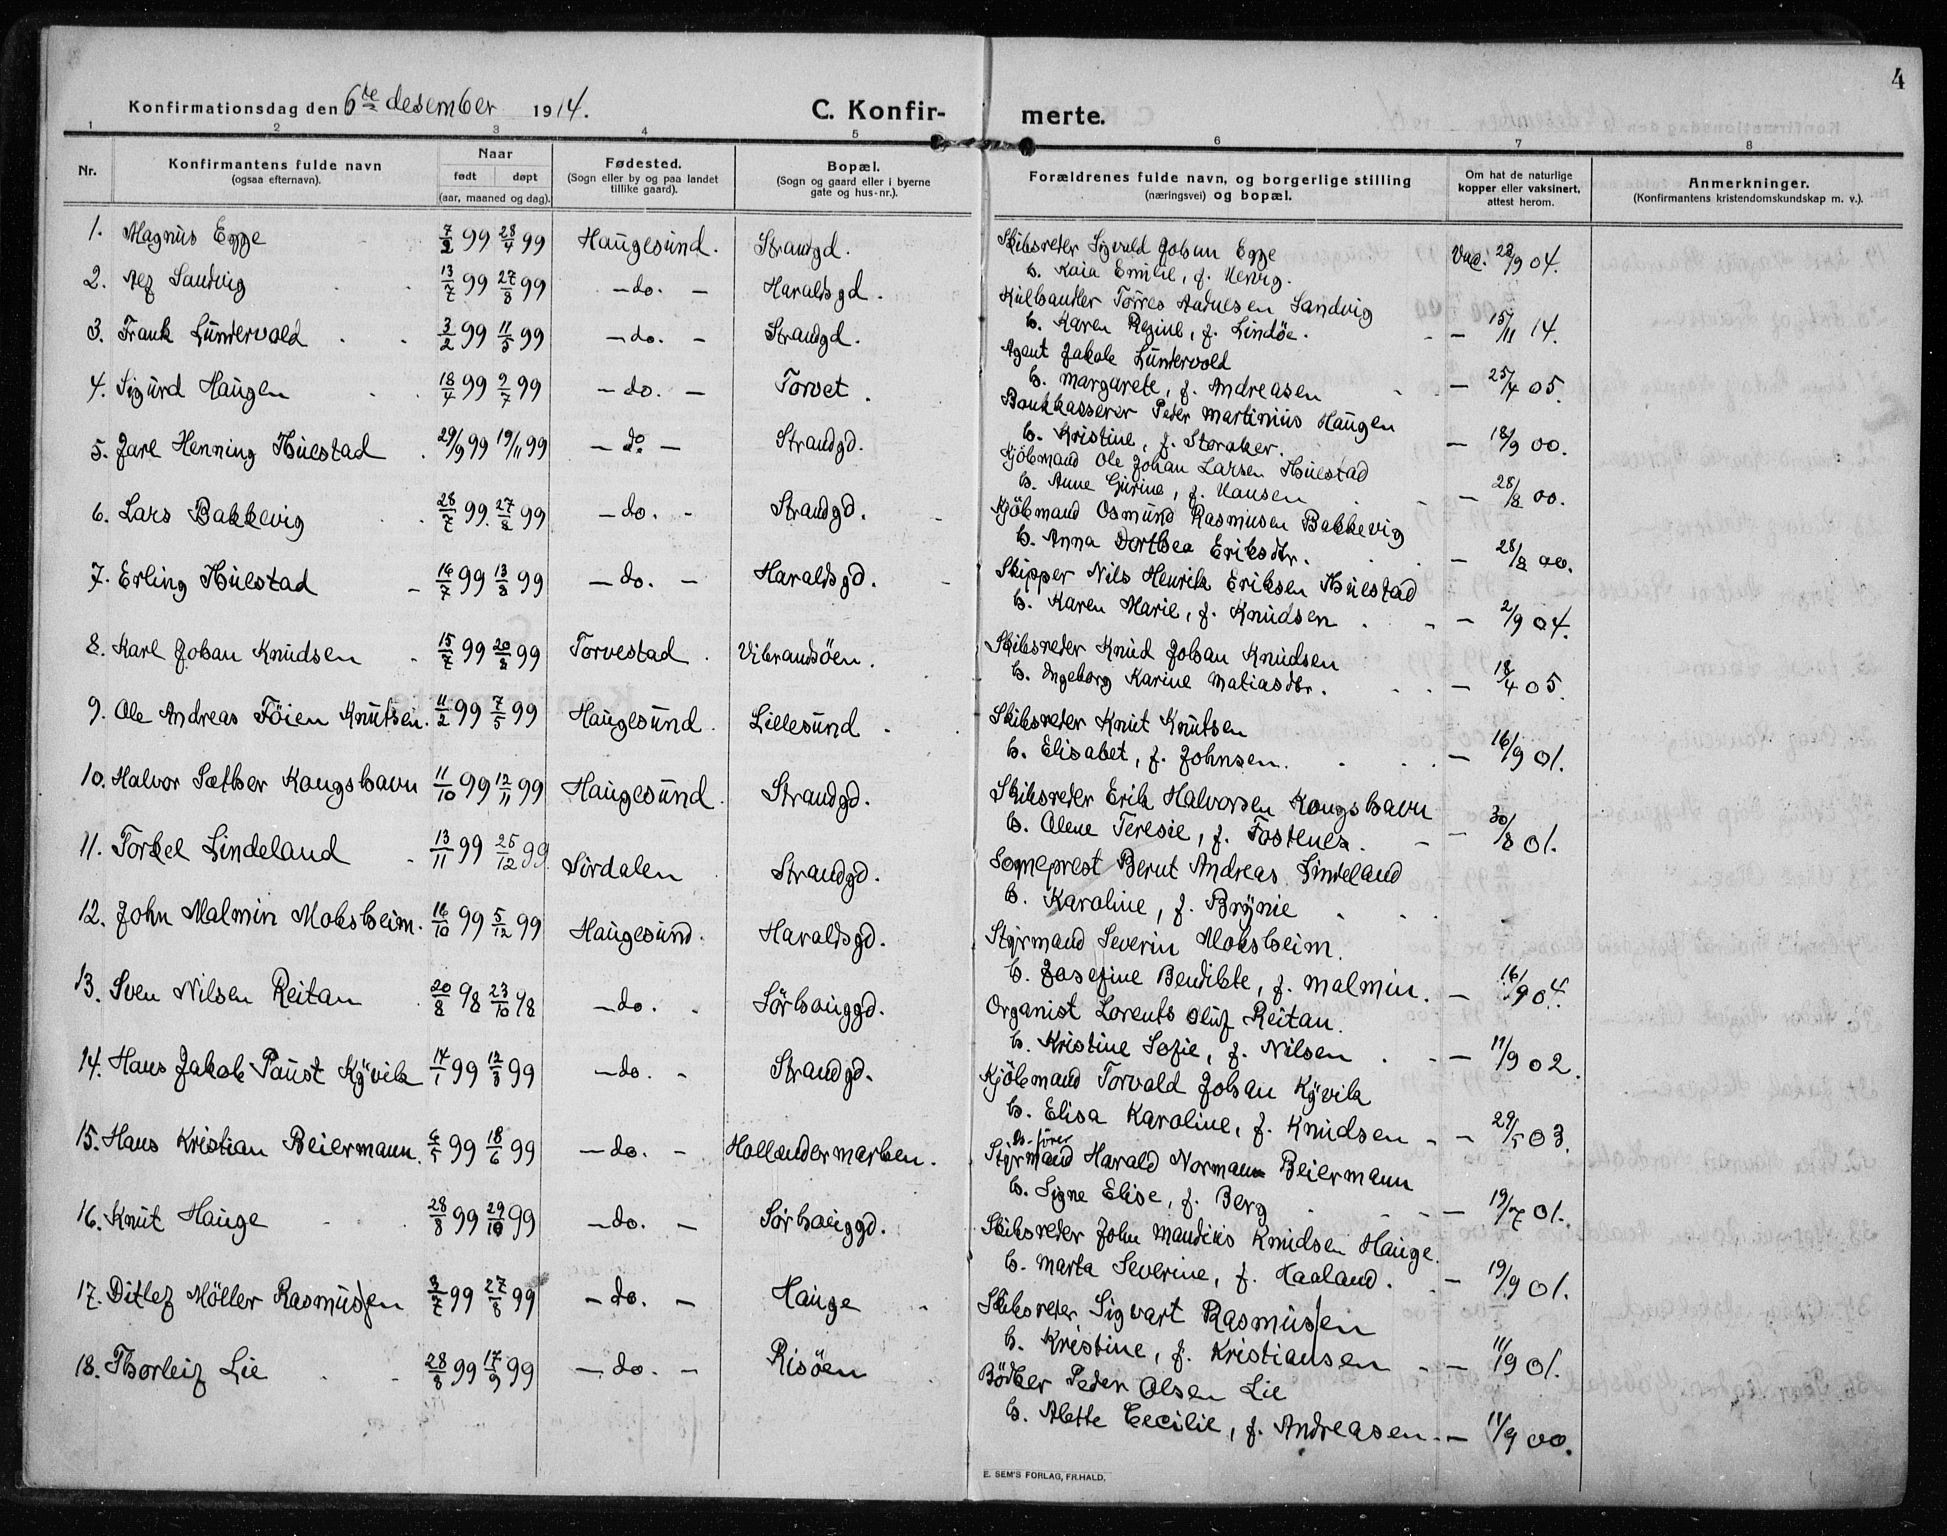 4
Konfirmationsdag den 6te desember 1914.
C. Konfir-
merte.
1 2 3 4 5 6 7 8
Nr.
Konfirmantens fulde navn
(ogsaa efternavn).
Naar
født døpt
(aar, maaned og dag).
Fødested.
(Sogn eller by og paa landet
tillike gaard).
Bopæl.
(Sogn og gaard eller i byerne
gate og hus-nr.).
Forældrenes fulde navn, og borgerlige stilling
(næringsvei) og bopæl.
Om hat de naturlige
kopper eller vaksinert,
attest herom.
Anmerkninger.
(Konfirmantens kristendomskundskap m. v.).
1. Magnus Egge 7/2 99 28/4 99 Haugesund. Strandgd.
Skibsreder Sigvald Johan Egge
h. Kaia Emilie, f. Vac. 28/9 04.
2. Alf Sandvig 13/7 99 27/8 99 —do. — Haraldsgd.
Kulhandler Torres Sandvig
h. Karen Regine, f. Lindøe. — 15/11 14.
3. Frank Lundervold 3/2 99 11/5 99 —do. — Strandgd.
Agent Jakob Lundervold
h. Margarete, f. Andreasen — 25/4 05.
4. Sigurd Haugen 18/4 99 9/7 99 —do. — Torvet.
Bankkasserer Peder Martinius Haugen
h. Kristine, f. Storaker. — 18/9 00.
5. Jarl Henning Huestad 29/9 99 19/11 99 —do— Strandgd.
Kjöbmand Ole Johan Larsen Huestad
h. Anne Gurine, f. Hansen — 28/8 00.
6. Lars Bakkevig 28/7 99. 27/8 99 —do. - Strandgd.
Kjöbmand Osmund Rasmusen Bakkevig
h. Anna Dorthea Eriksdtr. — 28/8 00.
7. Erling Huestad 16/7 99 13/8 99 —do. — Haraldsgd.
Skipper Nils Henrik Eriksen Huestad
h. Karen Marie, f. Knudsen — 2/9 04.
8. Karl Johan Knudsen 15/7 99 20/8 99 Torvestad. Vibrandsöen.
Skibsreder Knud Johan Knudsen
h. Ingeborg Karine Matiasdtr. — 18/4 05.
9. Ole Andreas Föien Knutsen. 11/2 99 7/5 99 Haugesund. Lillesund.
Skibsreder Knut Knutsen
h. Elisabet, f. Johnsen. — 16/9 01.
10. Halvor Sæther Kongshavn 11/10 99 12/11 99 Haugesund. Strandgd.
Skibsreder Erik Halvorsen Kongshavn
h. Olene Teresie, f. — 30/8 01.
11. Torkel Lindeland 13/11 99 25/12 99. Sirdalen Strandgd.
Sogneprest Bernt Andreas Lindeland
h. Karoline, f. Brynie
12. John Malmin Moksheim. 16/10 99 5/12 99 Haugesund. Haraldsgd.
Styrmand Severin Moksheim.
h. Josefine Bendikte, f. Malmin. — 16/9 04.
13. Sven Nilsen Reitan 20/8 98 23/10 98 —do. - Sörhauggd.
Organist Lorents Oluf Reitan.
h. Kristine Sofie, f. Nilsen — 11/9 02.
14. Hans Jakob Paust Kyvik 14/1 99 12/3 99 —do. - Strandgd.
Kjöbmand Torvald Johan Kyvik
h. Elisa Karoline, f. Knudsen — 29/5 03.
15. Hans Kristian Beiermann. 6/5 99 18/6 99 —do. - Hollendermarken.
Styrmand Harald Normann Beiermann
h. Signe Elise, f. Berg — 19/7 01.
16. Knut Hauge 28/8 99 29/10 99 —do. — Sörhauggd.
Skibsreder John Mandius Knudsen Hauge.
h. Marta Severine, f. Haaland. — 19/9 01.
17. Ditlef Möller Rasmussen 3/7 99 27/8 99 —do. — Hauge
Skibsreder Sigvart Rasmussen
h. Kristine, f. Kristiansen — 11/9 01.
18. Thorleif Lie 28/8 99 17/9 99 —do. — Risöen
Bödker Peder Olsen Lie
h. Alette Cecilie, f. Andreasen. — 11/9 00.
E. SEM'S FORLAG, FR.HALD.